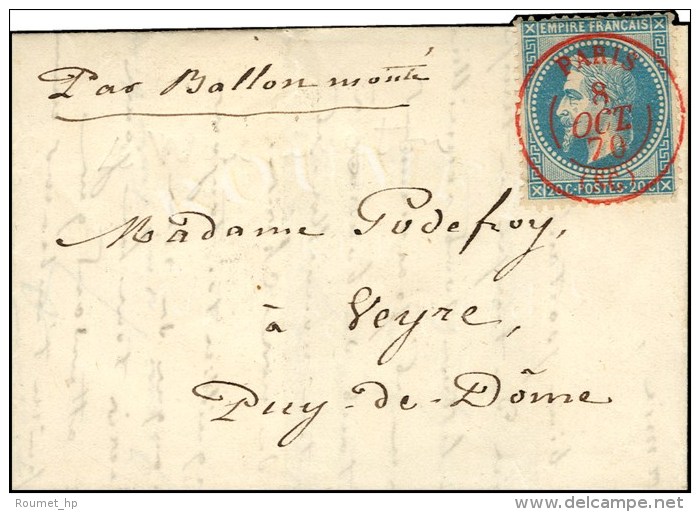 Par Ballon monté
EMPIRE FRANÇAIS
PARIS
8
OCT
70
20 C - POSTES - 20 C
Madame Godefroy,
à Veyre,
Puy-de-Dôme
Roumet_hp
delcampe.net